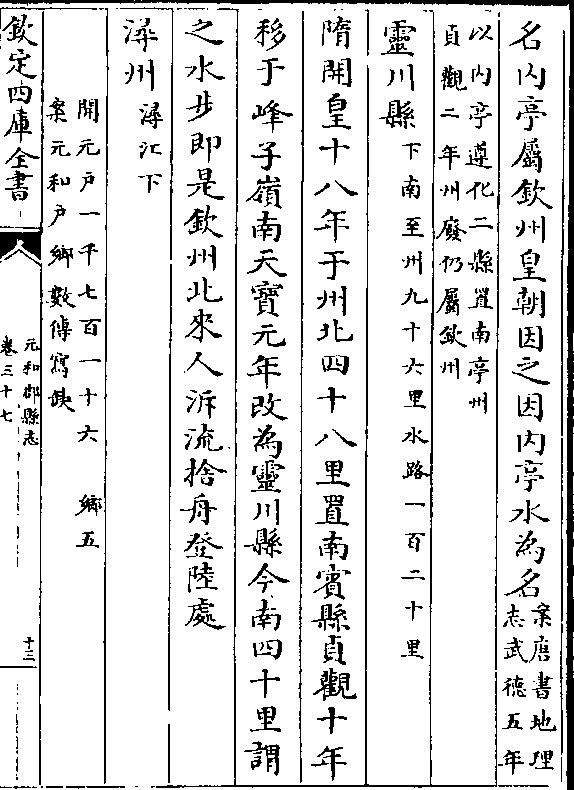 名内亭屬欽州皇朝因之因内亭水為名案唐書地理
志武德五年
以内亭遵化二縣置南亭州
貞觀二年州廢仍屬欽州
靈川縣下南至州九十六里水路一百二十里
隋開皇十八年于州北四十八里置南賓縣貞觀十年
移于峰子嶺南天寶元年改為靈川縣今南四十里謂
之水步即是欽州北來人泝流捨舟登陸處
潯州潯江下
開元户一千七百一十六　鄉五
案元和户鄉數傳寫缺
欽定四庫全書
元和郡縣志
卷三十七
十三